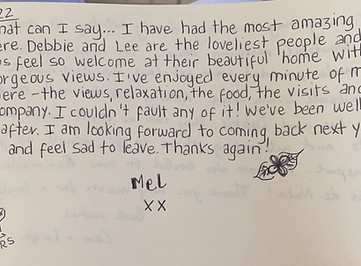 22
hat can I say... I have had the most amazing
ere. Debbie and Lee are the loveliest people and
s feel so welcome at their beautiful home wit
orgeous views. I've enjoyed every minute of m
ere - the views, relaxation, the food, the visits an
ompany. I couldn't fault any of it! We've been well
after. I am looking forward to coming back next y
and feel sad to leave. Thanks again!
Mel
xx
RS